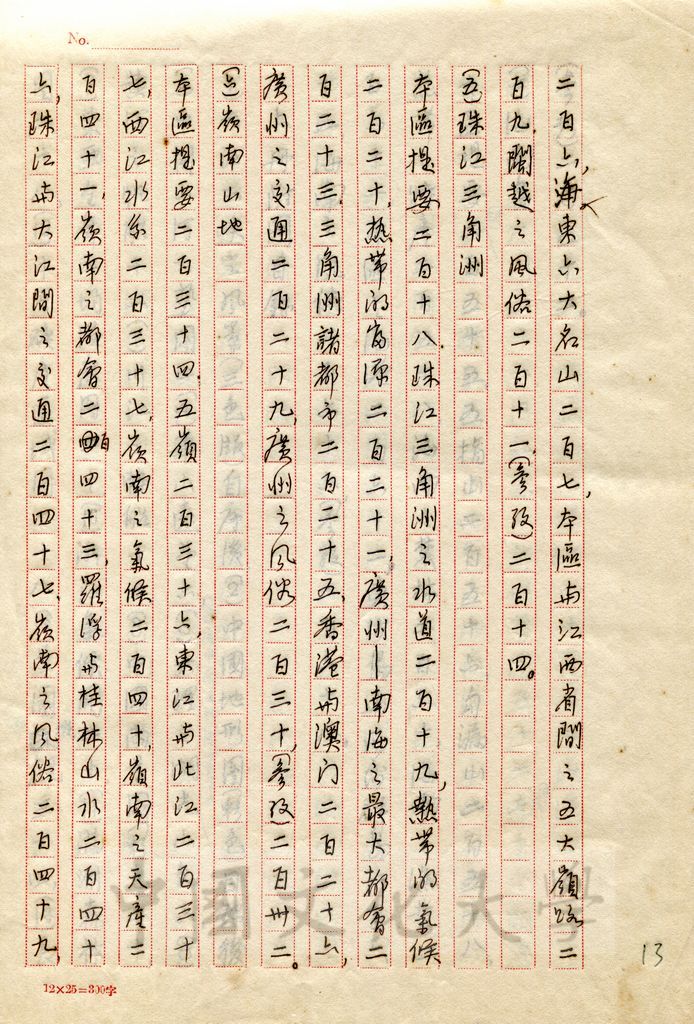 No.
二百六,海東六大名山二百七,本區与江西省間之五大嶺路二
百九,閩越之風俗二百十一,(參攷)二百十四。
(五)珠江三角洲
本區提要二百十八,珠江三角洲之水道二百十九,熱帶的氣候
二百二十,热帶的富源二百二十一,廣州—南海之最大都會二
百二十三,三角洲諸都市二百二十五,香港与澳门二百二十六,
廣州之交通二百二十九,廣州之风俗二百三十,(參攷)二百卅二。
(六)嶺南山地
本區提要二百三十四,五嶺二百三十六,東江与北江二百三十
七,西江水系二百三十七,嶺南之氣候二百四十,嶺南之天產二
百四十一,嶺南之都會二百四十三,羅浮与桂林山水二百四十
六,珠江与大江間之交通二百四十七,嶺南之风俗二百四十九,
13
12×25=300字
中國文化大學